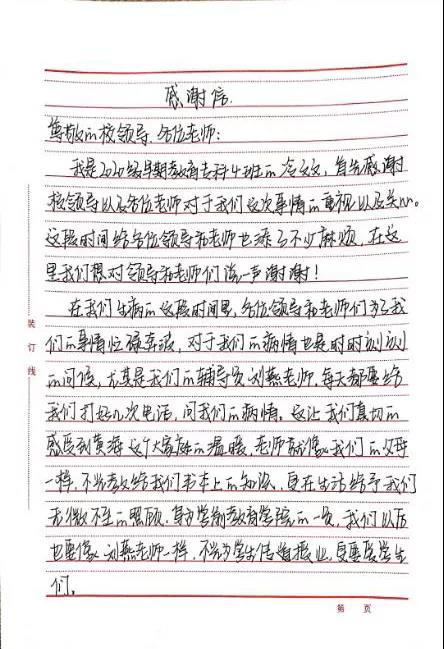 感谢信.
尊敬的校领导、各位老师:
我是2020级早期教育专科4班的 , 首先感谢
校领导以及各位老师对于我们这次事情的重视以及关心。
这段时间给各位领导和老师也添了不少麻烦, 在这
里我们想对领导和老师们说一声谢谢!
在我们生病的这段时间里, 各位领导和老师们为了我
们的事情忙碌奔波, 对于我们的病情也是时时刻刻
的问候, 尤其是我们的辅导员刘燕老师, 每天都要给
我们打好几次电话, 问我们的病情, 这让我们真切的
感受到黄海这个大家庭的温暖, 老师就像我们的父母
一样, 不光教给我们书本上的知识, 更在生活给予我们
无微不至的照顾, 身为学前教育学院的一员, 我们以后
也要像刘燕老师一样, 不光为学生传道授业, 更要爱学生
们。
装订线
第 页